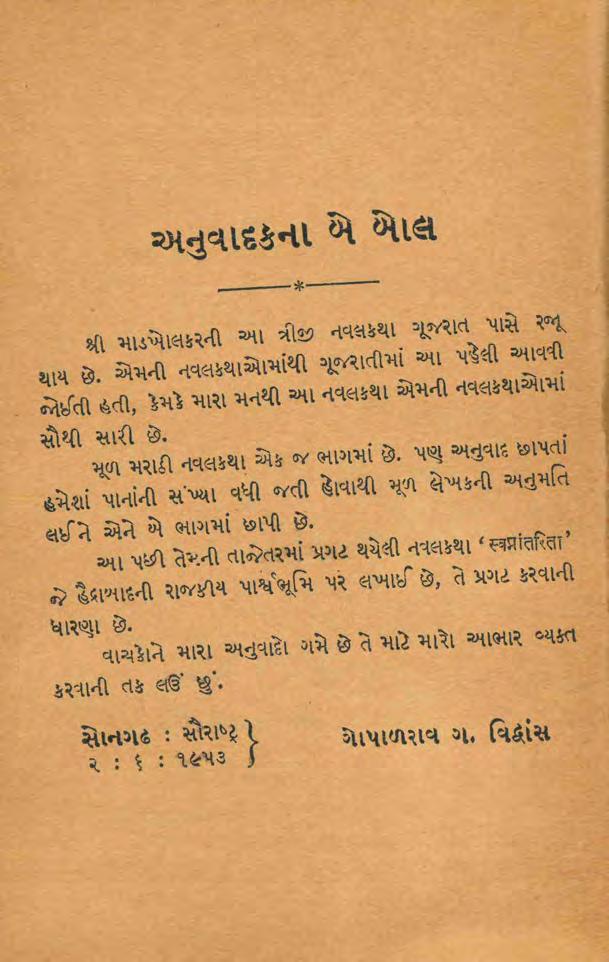 અનુવાદકના બે બોલ
શ્રી માડખોલકરની આ ત્રીજી નવલકથા ગૂજરાત પાસે રજૂ
થાય છે. એમની નવલકથાઓમાંથી ગૂજરાતીમાં આ પહેલી આવવી
જોઈતી હતી, કેમકે મારા મનથી આ નવલકથા એમની નવલકથાઓમાં
સૌથી સારી છે.
મૂળ મરાઠી નવલકથા એક જ ભાગમાં છે. પણ અનુવાદ છાપતાં
હમેશાં પાનાંની સંખ્યા વધી જતી હોવાથી મૂળ લેખકની અનુમતિ
લઈને એને બે ભાગમાં છાપી છે.
આ પછી તેમની તાજેતરમાં પ્રગટ થયેલી નવલકથા ‘સ્વપ્રાંતરિતા’
જે હૈદ્રાબાદની રાજકીય પાર્શ્વભૂમિ પર લખાઈ છે, તે પ્રગટ કરવાની
ધારણા છે.
વાચકોને મારા અનુવાદો ગમે છે તે માટે મારો આભાર વ્યક્ત
કરવાની તક લઉં છું.
સોનગઢ : સૌરાષ્ટ્ર
૨ : ૬ : ૧૯૫૩
ગોપાળરાવ ગ. વિદ્વાંસ